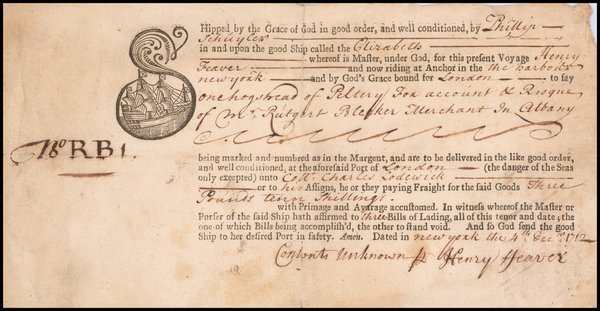 SHipped by the Grace of God in good order, and well conditioned, by Phillip
Schuyler
in and upon the good Ship called the Elizabeth
whereof is Master, under God, for this present Voyage Henry
Feaver and now riding at Anchor in the the harbour
newyork and by God's Grace bound for London to say
one hogshead of Peltery For account & Risque
of Mr. Rutgert Bleeker Merchant In Albany
being marked and numbred as in the Margent, and are to be delivered in the like good order,
and well conditioned, at the aforesaid Port of London (the danger of the Seas
only excepted) unto Coll. Charles Lodewick
or to his Assigns, he or they paying Fraight for the said Goods Three
Pounds tenn Shillings.
with Primage and Avarage accustomed. In witness whereof the Master or
Purser of the said Ship hath affirmed to three Bills of Lading, all of this tenor and date; the
one of which Bills being accomplish'd, the other to stand void. And so God send the good
Ship to her desired Port in safety. Amen. Dated in newyork the 4th Decr. 1712
Contents Unknown Henry Feaver
RB 1.